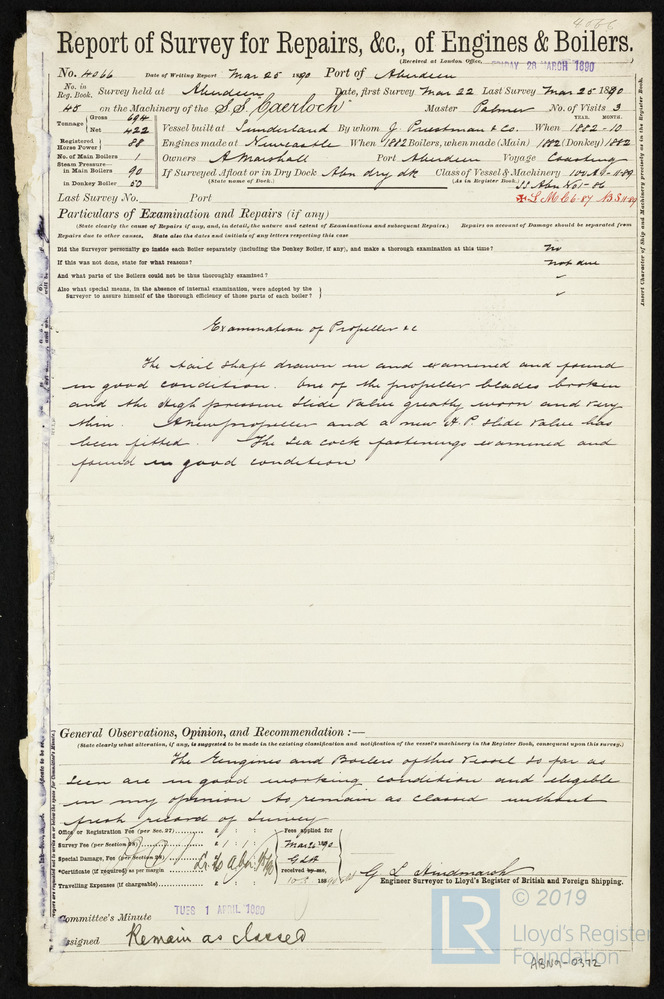 4066
Report of Survey for Repairs, &c., of Engines & Boilers.
(Received at London Office, FRIDAY 28 MARCH 1890
No. 4066 Date of Writing Report Mar 25 1890 Port of Aberdeen
No. in Reg. Book. Survey held at Aberdeen Date, first Survey Mar 22 Last Survey Mar 25 1890
45 on the Machinery of the S.S. "Caerloch" Master Palmer No. of Visits 3
Tonnage Gross 694 Net 422 Vessel built at Sunderland By whom J. Priestman & Co. When YEAR. 1882 MONTH. 10
Registered Horse Power 88 Engines made at Newcastle When 1882 Boilers, when made (Main) 1882 (Donkey) 1882
No. of Main Boilers 1 Owners A Marshall Port Aberdeen Voyage Coasting
Steam Pressure in Main Boilers 90 If Surveyed Afloat or in Dry Dock Abn dry dk Class of Vessel & Machinery 100A1-11-89
in Donkey Boiler 50 (State name of Dock.) (As in Register Book.) SS Abn No 1-86
Last Survey No. Port ✠ L.M.C 6-87 B.S 11-89
Particulars of Examination and Repairs (if any)
(State clearly the cause of Repairs if any, and, in detail, the nature and extent of Examinations and subsequent Repairs.) Repairs on account of Damage should be separated from
Repairs due to other causes. State also the dates and initials of any letters respecting this case
Did the Surveyor personally go inside each Boiler separately (including the Donkey Boiler, if any), and make a thorough examination at this time? No
If this was not done, state for what reasons? not due
And what parts of the Boilers could not be thus thoroughly examined?
Also what special means, in the absence of internal examination, were adopted by the
Surveyor to assure himself of the thorough efficiency of those parts of each boiler?
Examination of Propeller &c
The tail shaft drawn in and examined and found
in good condition. One of the propeller blades broken
and the High pressure slide valve greatly worn and very
thin. A new propeller and a new H.P. slide valve has
been fitted. The sea cock fastenings examined and
found in good condition
Insert Character of Ship and Machinery precisely as in the Register Book.
General Observations, Opinion, and Recommendation :—
(State clearly what alteration, if any, is suggested to be made in the existing classification and notification of the vessel's machinery in the Register Book, consequent upon this survey.)
The Engines and Boilers of this vessel so far as
seen are in good working condition and eligible
in my opinion to remain as classed without
fresh record of Survey
Office or Registration Fee (per Sec. 27) £ : : Fees applied for
Survey Fee (per Section 28) £ : : Mar 25 1890
Special Damage, Fee (per Section 28)
*Certificate (if required) as per margin received by me,
Travelling Expenses (if chargeable)
G L Hindmarsh
Engineer Surveyor to Lloyd's Register of British and Foreign Shipping.
Committee's Minute TUES 1 APRIL 1890
ssigned Remain as classed
© 2019
LR
Lloyd's Register
Foundation
ABN9-0372